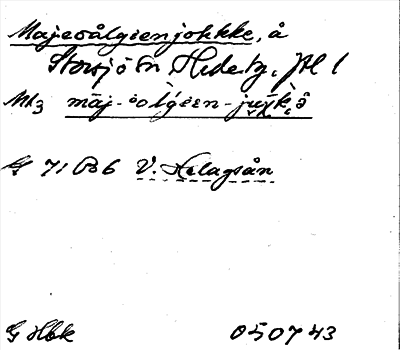 Majeoålgeenjokkke, å
Storsjö sn, Hede tg, Jtl l
M13 māj-ŏol'geen-juχ̭k̭ē̮
G 71 B6 V. Helagsån
G Hbk 050743